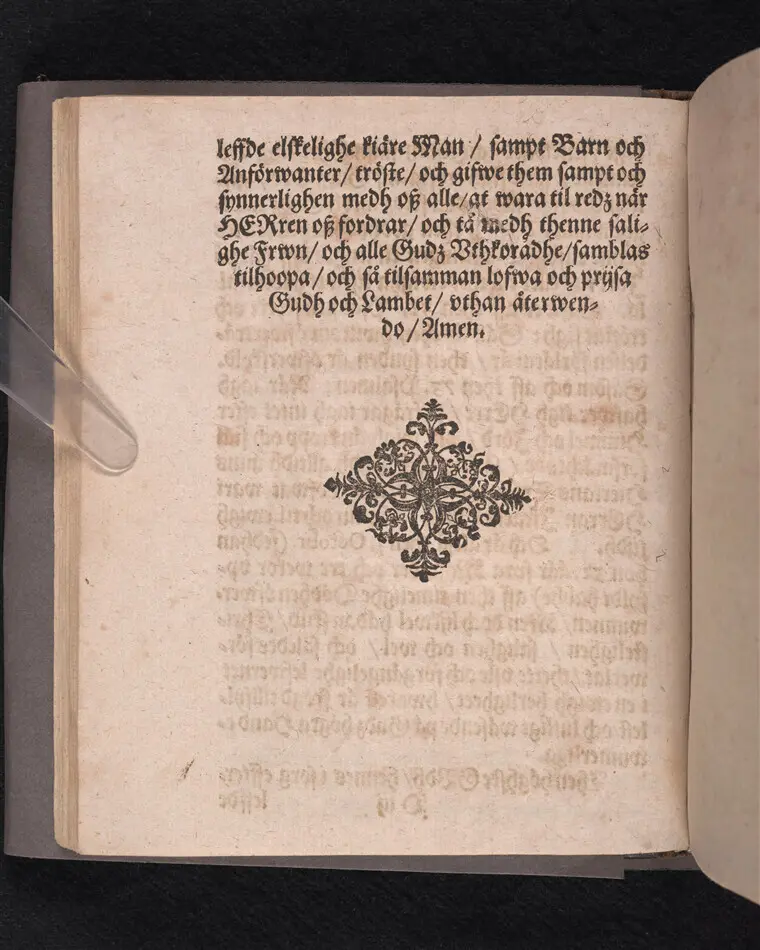 leffde elskelighe kiäre Man / sampt Barn och
Anförwanter / tröste / och gifwe them sampt och
synnerlighen medh oß alle / at wara til redz när
HERren oß fordrar / och tå medh thenne sali⸗
ghe Frwn / och alle Gudz Vthkoradhe / samblas
tilhoopa / och så tilsamman lofwa och prijsa
Gudh och Lambet / vthan återwen⸗
do / Amen.